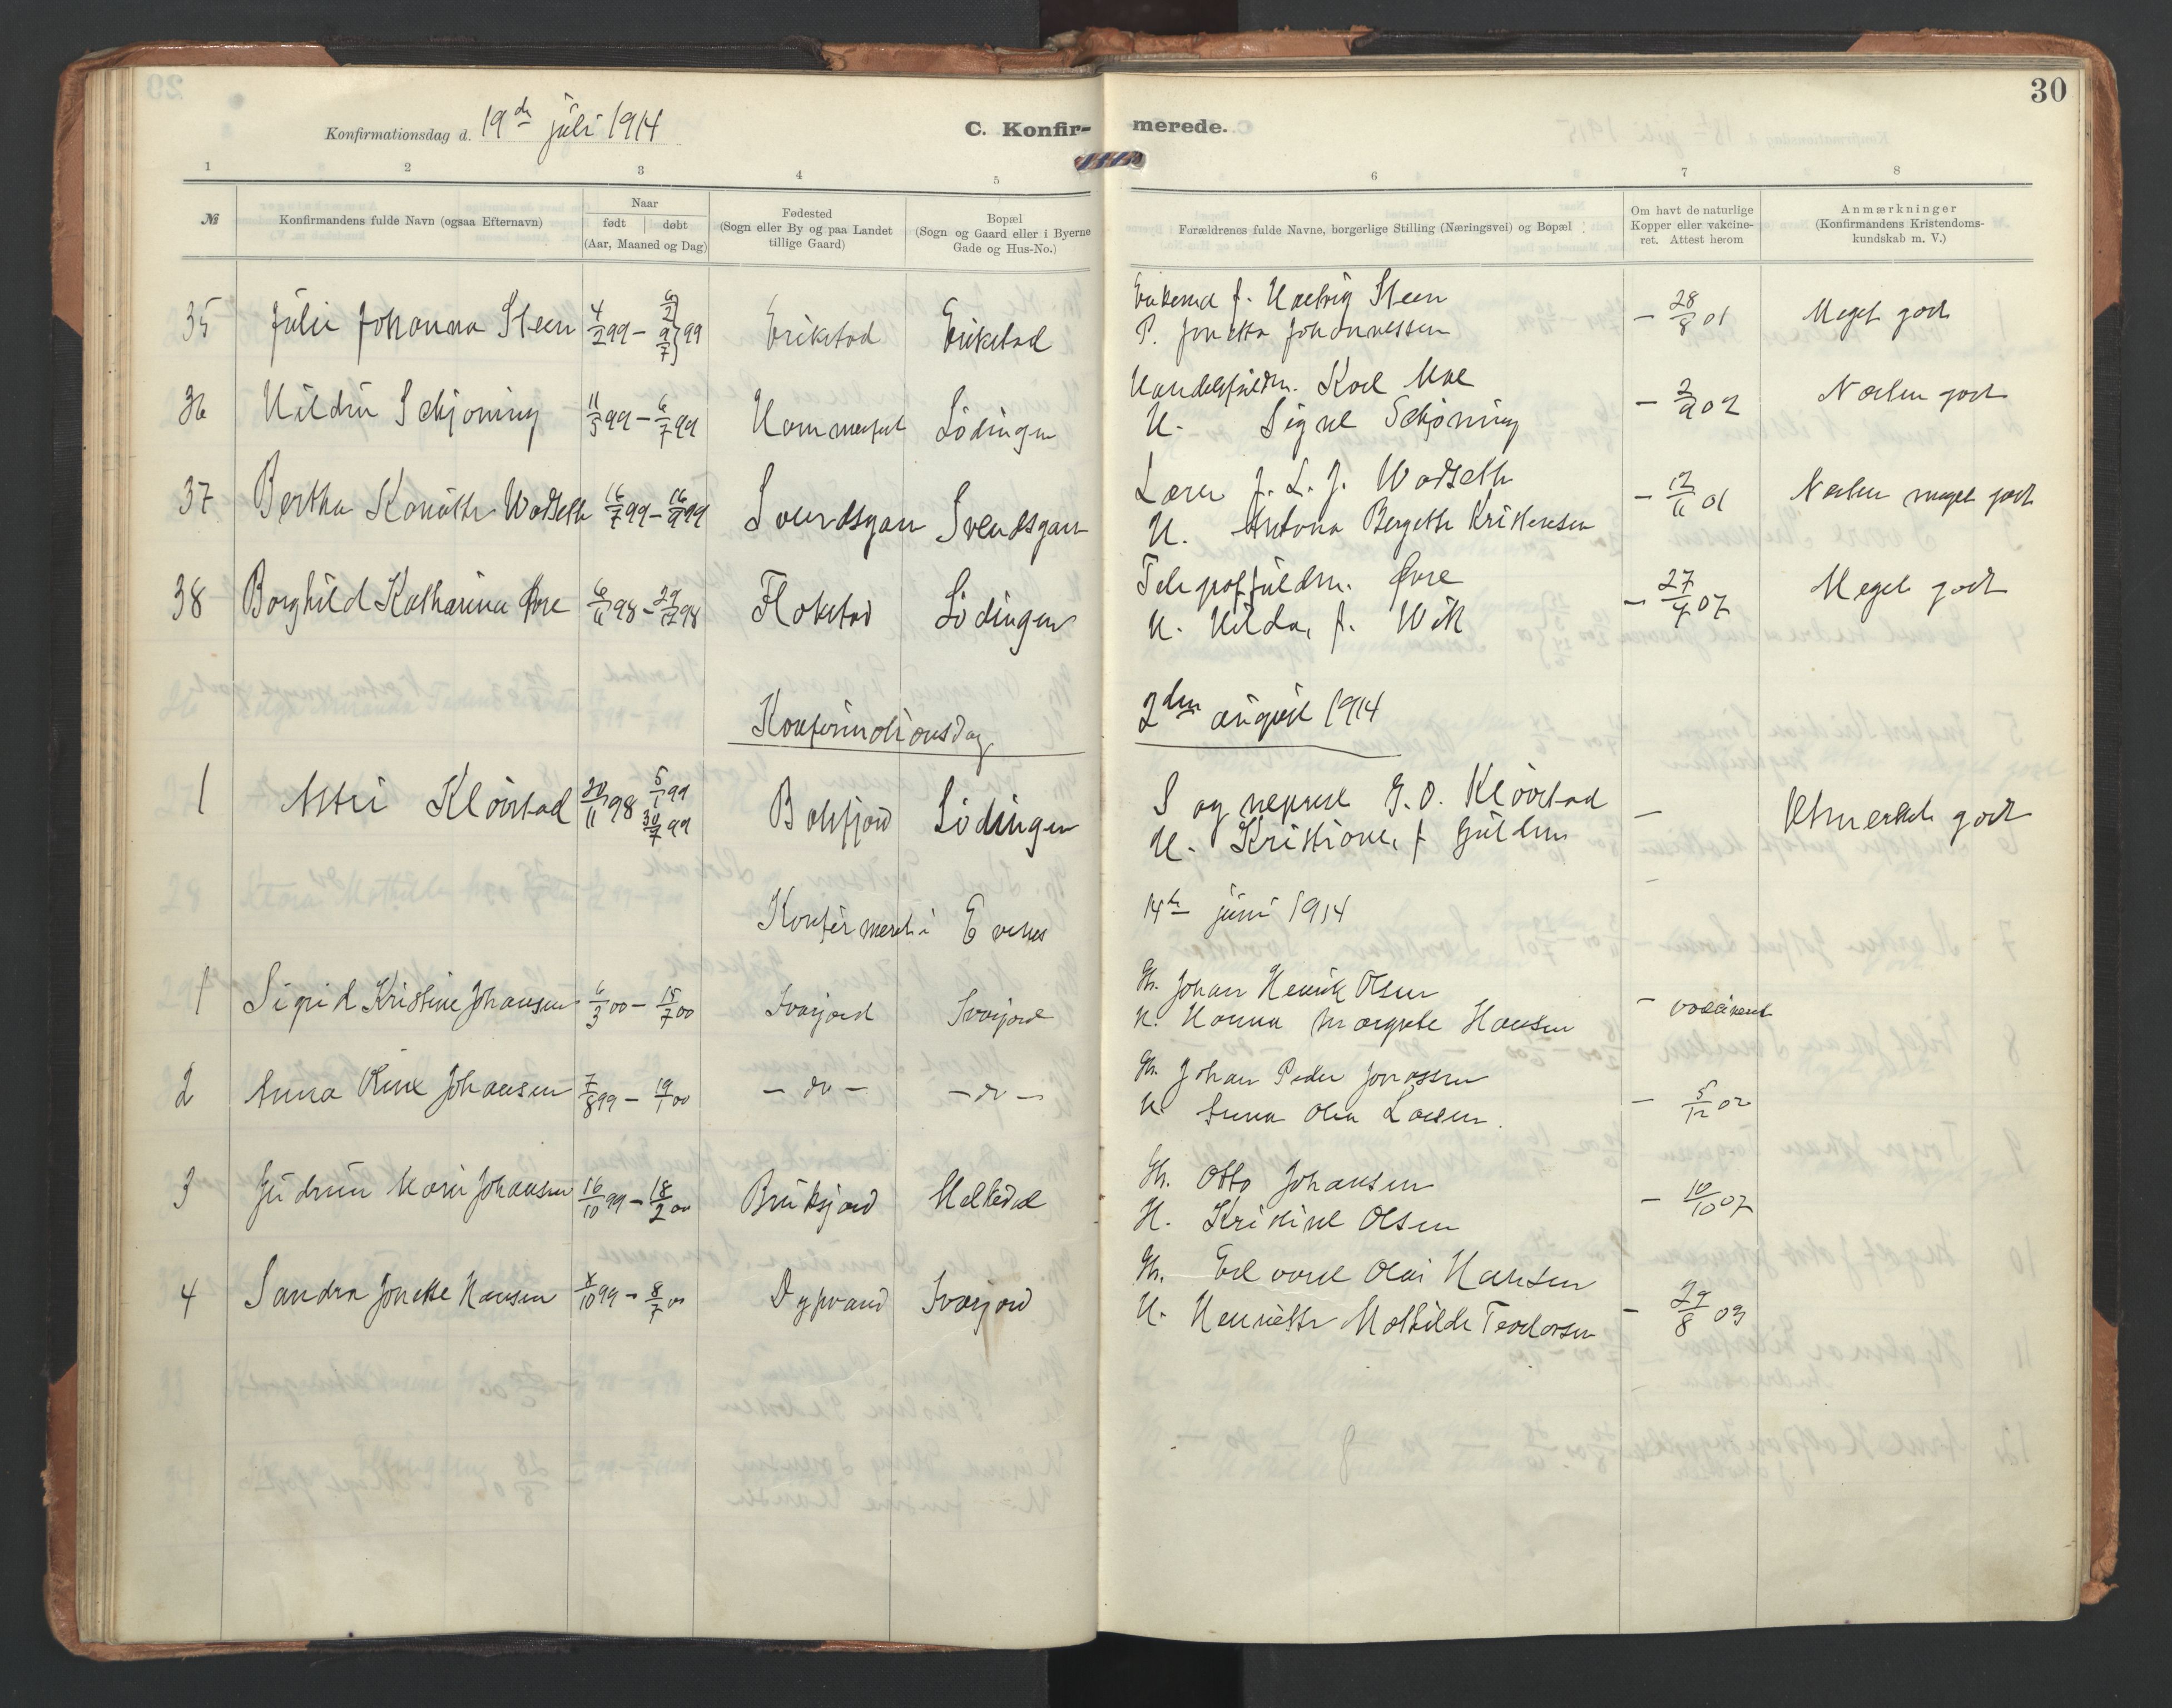 30
Konfirmationsdag d. 19de juli 1914
C. Konfir-merede.
1 2 3 4 5 6 7 8
№
Konfirmandens fulde Navn (ogsaa Efternavn)
Naar
født | døbt
(Aar, Maaned og Dag)
Fødested
(Sogn eller By og paa Landet
tillige Gaard)
Bopæl
(Sogn og Gaard eller i Byerne
Gade og Hus-No.)
Forældrenes fulde Navne, borgerlige Stilling (Næringsvei) og Bopæl
Om havt de naturlige
Kopper eller vakcine-
ret. Attest herom
Anmærkninger
(Konfirmandens Kristendoms-
kundskab m. V.)
35 Julie Johanna Steen 4/2 99 – 9/7 99 Erikstad Erikstad
Enkemd J. Hedvig Steen
P. Jonetta Johannessen
– 28/8 01 Meget godt
36 Hildur Schjøning 11/5 99 – 6/7 99 Hammerfest Lødingen
Handelsfuldm. Karl Moe
H. Signe Schjøning
– 2/9 02 Næsten godt
37 Bertha Konstanse Wodseth 16/7 99 – 16/9 99 Svendsgam Svendsgam
Lærer J. L. J. Wodseth
H. Antona Bergette Kristensen
– 12/11 01 Næsten meget godt
38 Borghild Katharina Øvre 6/11 98 – 29/12 98 Flakstad Lødingen
Telegraffuldm. Øvre
H. Hilda, f. Wik
– 27/4 07 Meget godt
Konfirmationsdag 2den august 1914
1 Astri Kløvstad 20/11 98 5/1 99
30/7 99
Balsfjord Lødingen
Sogneprest G. O. Kløvstad
H. Kristiane, f. Guldem
– Utmerket godt
Konfirmert i Evenes 14de juni 1914
1 Sigrid Kristine Johansen 6/3 00 – 15/7 00 Svarjord Svarjord
Gm. Johan Henrik Olsen
H. Hanna Margrete Hansen
– vaksinert
2 Anna Oline Johansen 7/8 99 – 19/1 00 – do – – do –
Gm. Johan Peder Jonassen
H. Anna Olea Larsen.
– 5/12 02
3 Gudrun Marie Johansen 16/10 99 – 18/2 00 Bruksjord Melkedal
Gm. Otto Johansen
H. Kristine Olsen
– 10/10 07
4 Sandra Jonette Hansen 8/10 99 – 8/7 00 Dypvand Svarjord
Gm. Edvard Olai Hansen
H. Henriette Mathilde Teodorsen
– 29/8 03